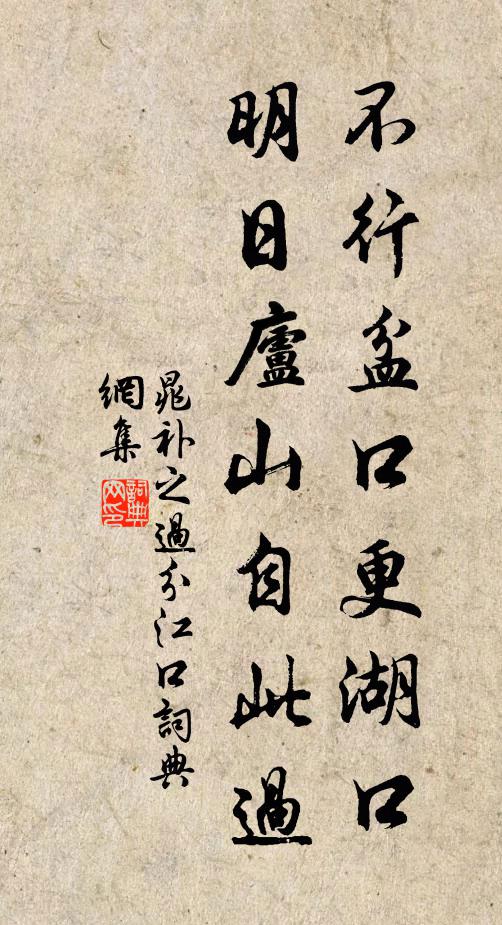 不行盆口更湖口
明日廬山自此過
晁补之過分江口詞典
網集
詞典网印